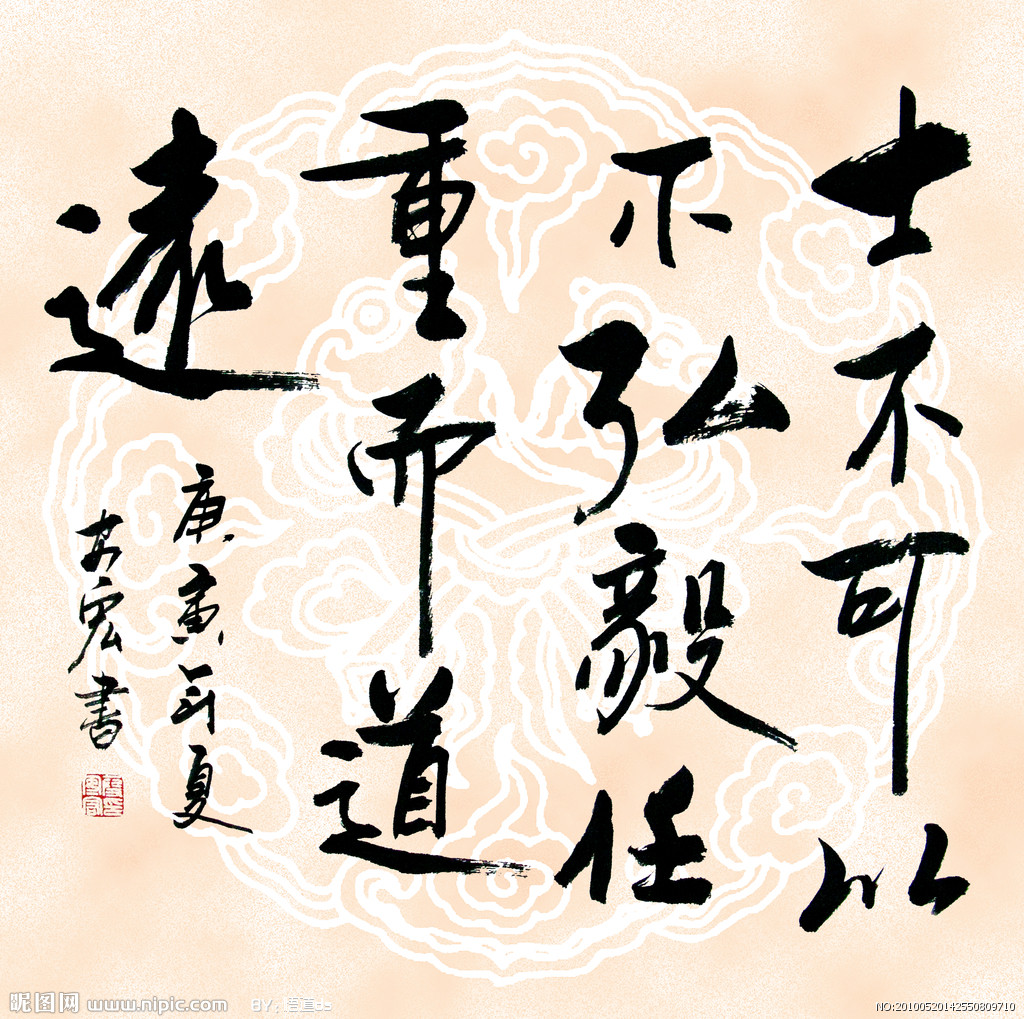 士不可以
不弘毅任
重而道
遠
庚寅年夏
宏書
昵图网 www.nipic.com
BY:悟道cs
NO:20100520142550809710